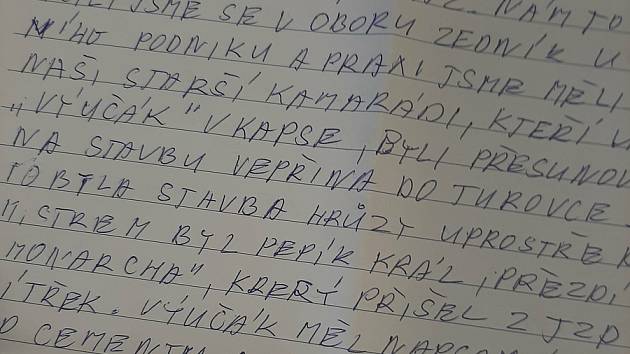 JSME SE V OBORU ZEDNÍK U
NÍHO PODNIKU A PRAXI JSME MĚLI
NAŠI STARŠÍ KAMARÁDI, KTEŘÍ
„VÝUČÁK" V KAPSE, BYLI PŘESUNOV
NA STAVBU VEPŘÍNA DO TUROVCE.
TO BYLA STAVBA HRŮZY UPROSTŘE
MISTREM BYL PEPÍK KRÁL, PŘEZDÍ
MONARCHA", KRERÝ PŘIŠEL Z JZD
ÍTŘEK. VÝUČÁK MĚL